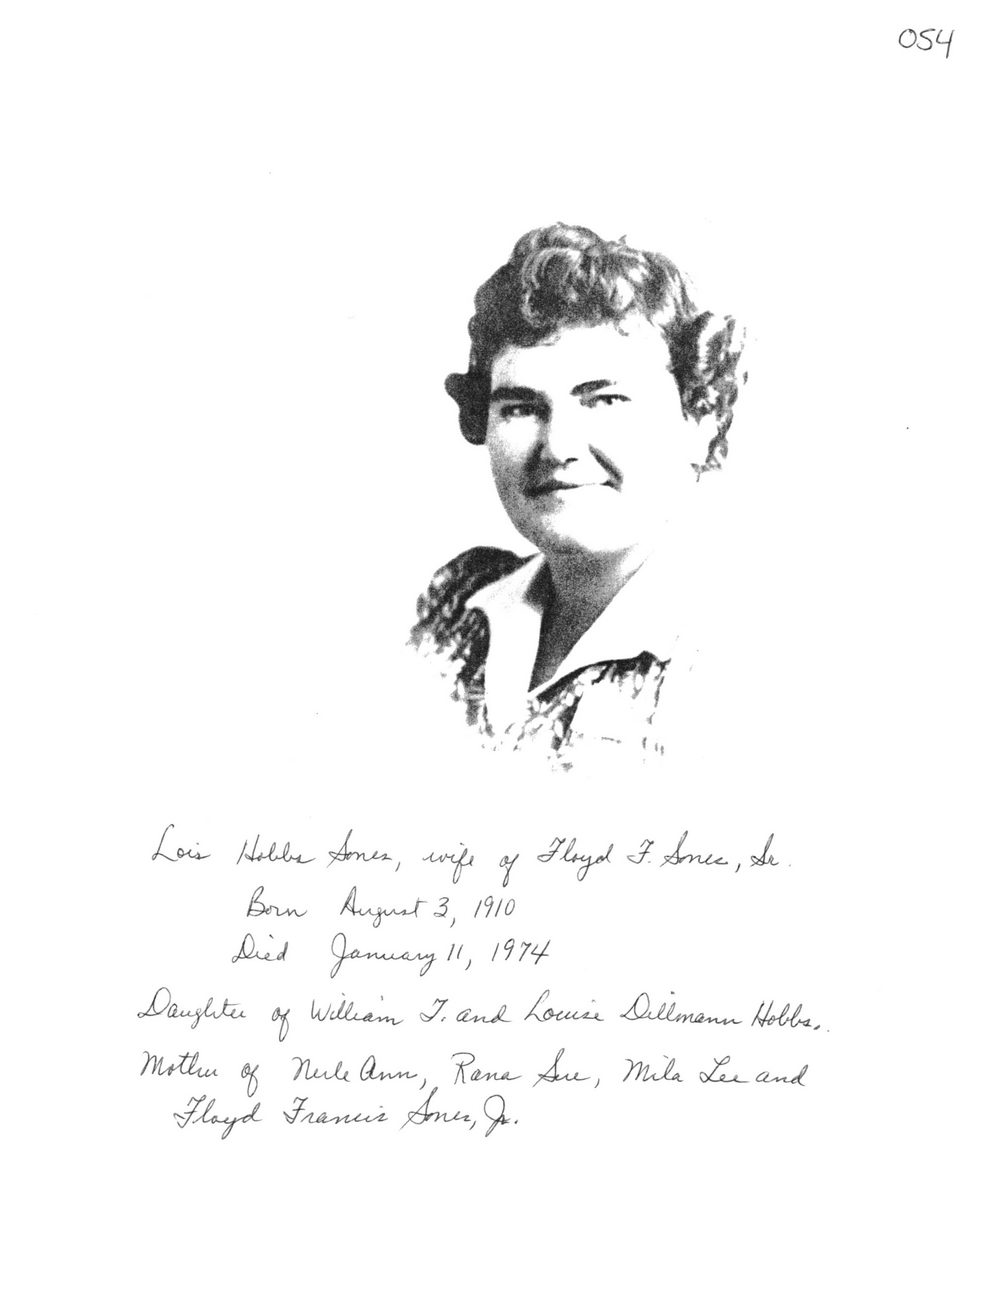 054
Lois Hobbs Sones, wife of Floyd F. Sones, Sr.
Born August 3, 1910
Died January 11, 1974
Daughter of William T. and Louise Dillmann Hobbs.
Mother of Nerle Ann, Rana Sue, Mila Lee and
Floyd Francis Sones, Jr.